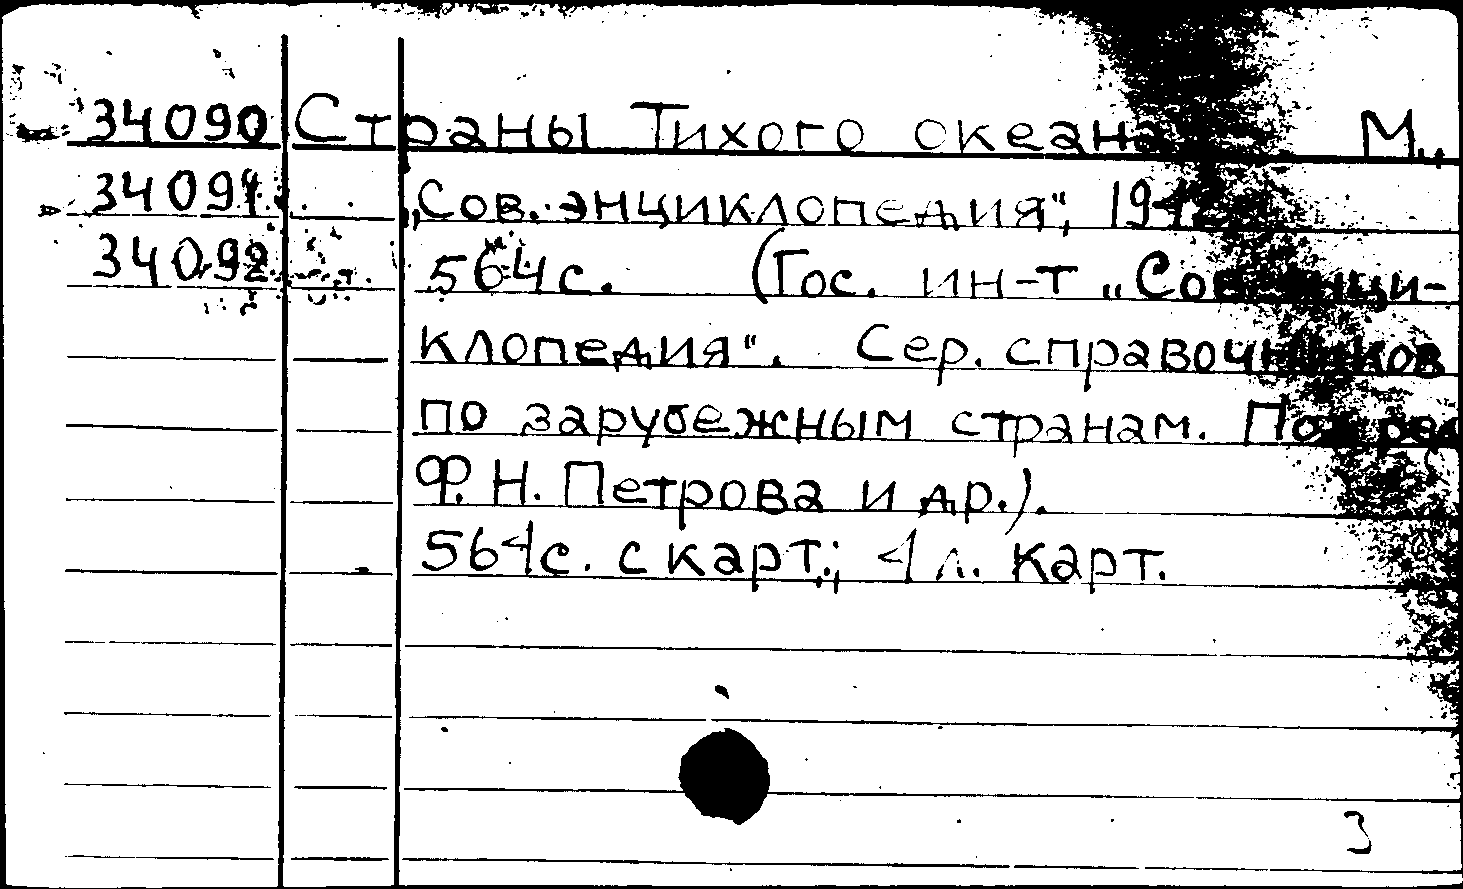 34090 Страны Тихого океана М.,
34091 „Сов. энциклопедия", 1942
34092 564 с. (Гос. ин-т „Сов. энци-
клопедия". Сер. справочников
по зарубежным странам. Под ред
Ф. Н. Петрова и др.).
564 с. с карт.; 4 л. карт.
3